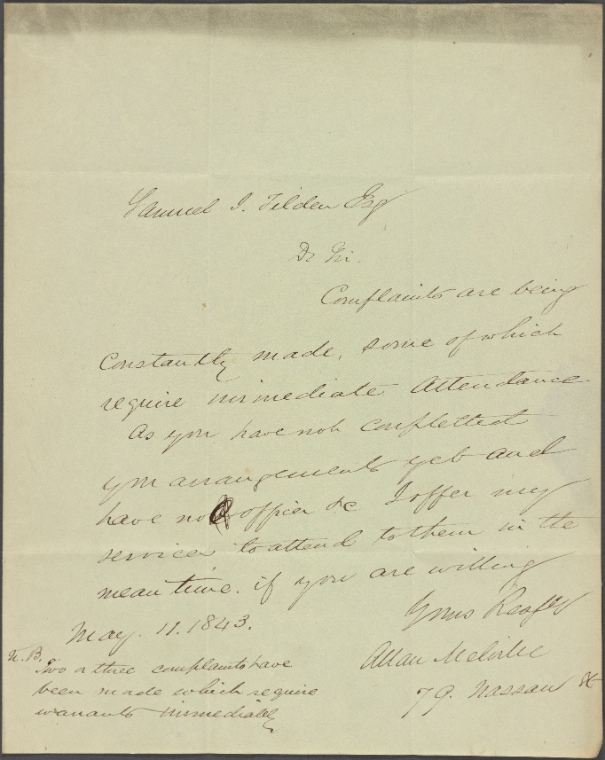 Samuel J. Tilden Esq
Dr Sir.
Complaints are being
constantly made, some of which
require immediate attendance.
As you have not compleeted
your arrangements yet and
have no office &c I offer my
services to attend to them in the
mean time. if you are willing
Yours Respfy
Allan Melville
79. Nassau St
May. 11. 1843.
N.B.
Two or three complaints have
been made which require
warrants immediately